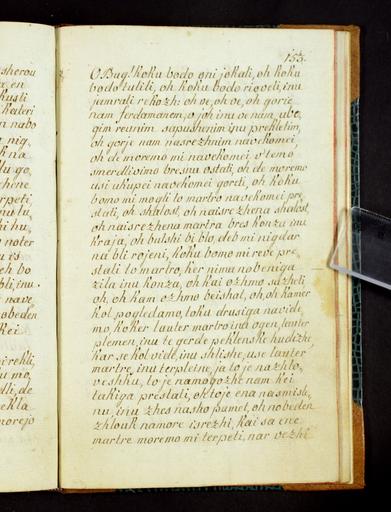 sherou
en
kusti
kateri
n nabo
nig,
h na
lu go,
zhene
erpeti,
inu tu,
hi hu,
noter
u is
eh bo
bli, inu
nave
nobeden
kei
birekli,
mo,
dli, de
ekla
morejo
153.
O Bug! koku bodo oni jokali, oh koku
bodo tulili, oh koku bodo rioveli, inu
jamrali rekozh: oh ve, oh ve, oh gorje
nam ferdamanem, o joh inu ve nam, ubo,
gim revnim sapushenim inu prekletim,
oh gorje nam nasrezhnim navekomei,
oh de moremo mi navekomei v temo
smerdlivimo bresnu ostati, oh de moremo
usi ukupei navekomei goreti, oh koku
bomo mi mogli to martro navekomei pre,
stati, oh shalost, oh naisrezhena shalost,
oh naisrezhena martra bres konza inu
kraja, oh bulshi bi blo, de b mi nigdar
na bli rojeni, koku bomo mi reve pre,
stali to martro, ker nima nobeniga
zila inu konza, oh kai ozhmo sazheti
oh, oh kam ozhmo beishat, oh, oh kamer
kol pogledamo, toku drusiga na vide,
mo, koker lauter martro inu ogen, lauter
plemen, inu te gerde peklenske hudizhe,
kar se kol vide, inu shlishe, use lauter
martre, inu terpleine, ja to je na zhlo,
veshku, to je namogozhe nam kei
takiga prestati, oktoje ena nasmisle,
nu, inu zhes nasho pamet, oh nobeden
zhlouk namore isrezhi, kai sa ene
martre moremo mi terpeti, nar vezhi